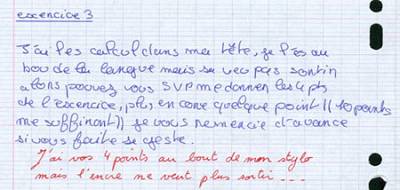 exercice 3
J'ai les calcul dans ma tête, je l'ès au
bou de la langue mais sa veu pas sortir
alors pouvez vous SVP me donner les 4 pts
de l'exercice, plus encore quelque point (( 10 points
me suffiront )) je vous remercie d'avance
si vous faite se geste.
J'ai vos 4 points au bout de mon stylo
mais l'encre ne veut plus sortir ...